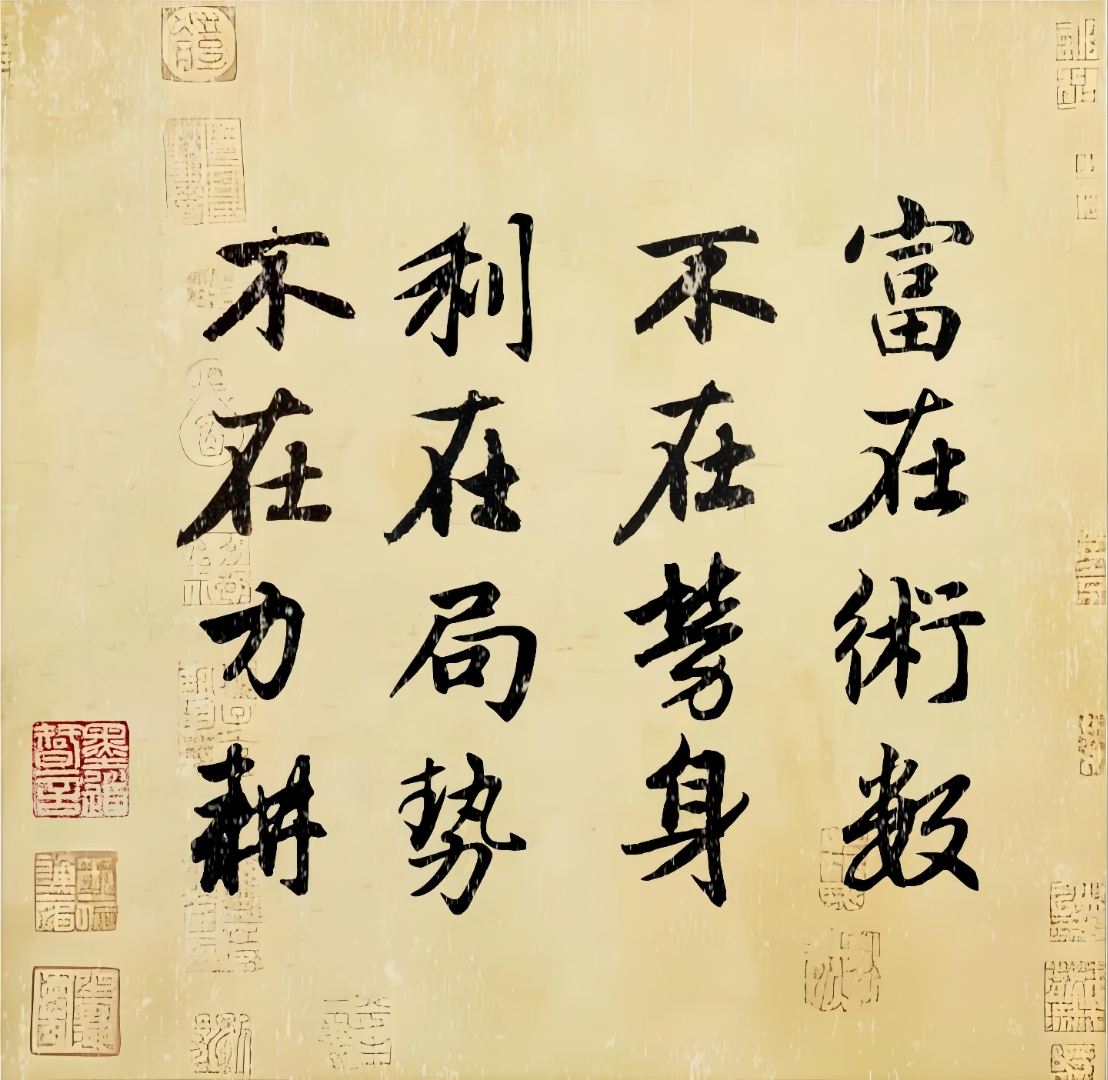 富在術数
不在劳身
利在局势
不在力耕